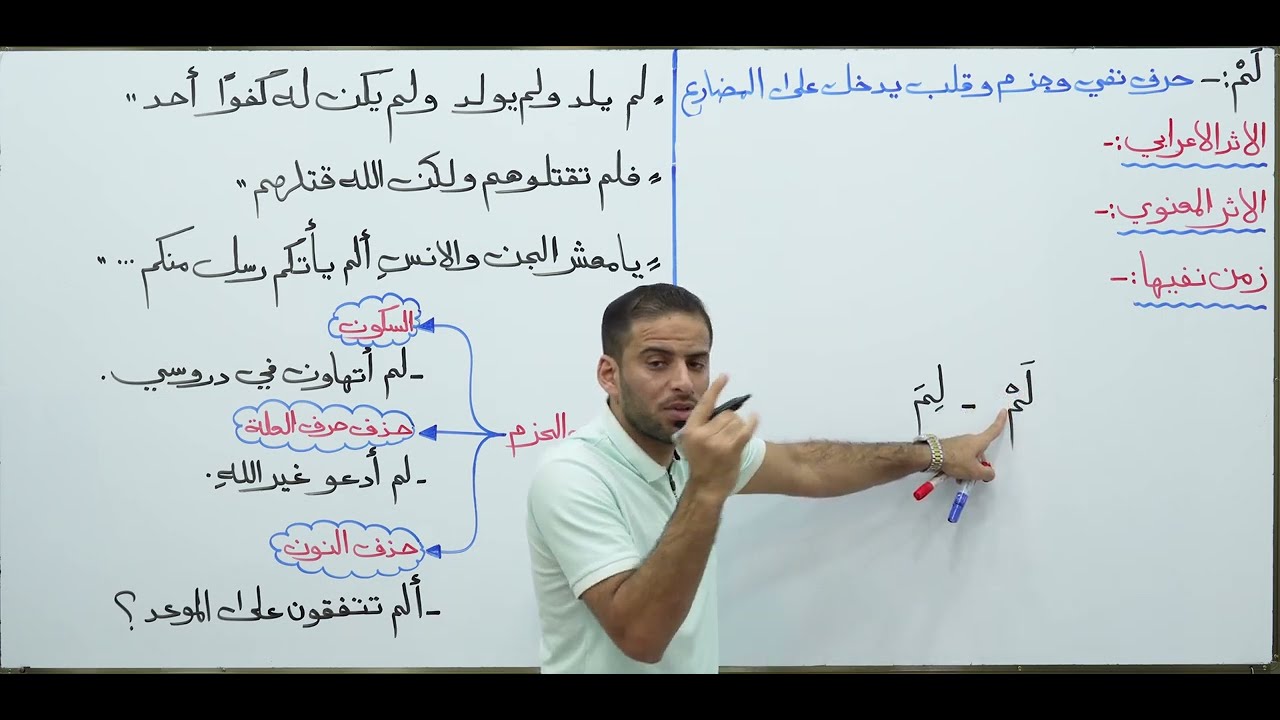 لَمْ:- حرف نفي وجزم وقلب يدخل على المضارع
الاثر الاعرابي:-
الاثر المعنوي:-
زمن نفيها:-
لَمْ - لِمَ
" لم يلد ولم يولد ولم يكن له كفوًا أحد "
" فلم تقتلوهم ولكن الله قتلهم "
" يا معشر الجن والانسِ ألم يأتكم رسل منكم ... "
السكون
- لم أتهاون في دروسي .
حذف حرف العلة
الجزم
- لم أدعو غير اللهِ .
حذف النون
- ألم تتفقون على الموعد ؟